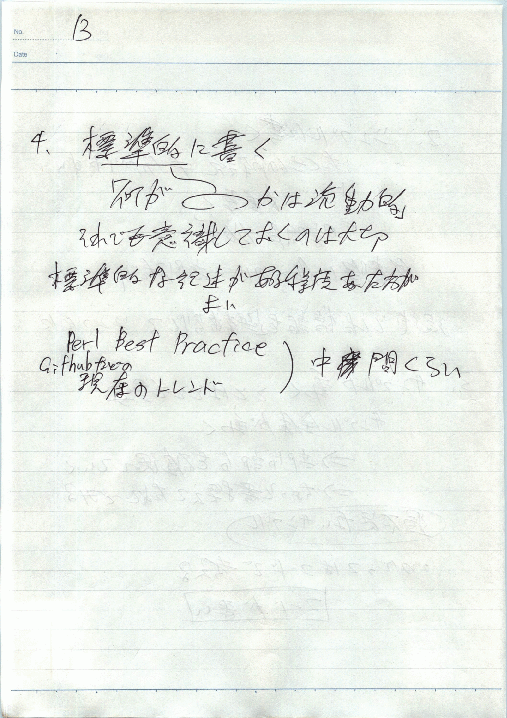 No. 13
Date
4、標準的に書く
「何が かは流動的」
それでも意識しておくのは大切
標準的な記述がある程度あった方が
よい
Perl Best Practice
Githubなどの
現在のトレンド
中間くらい